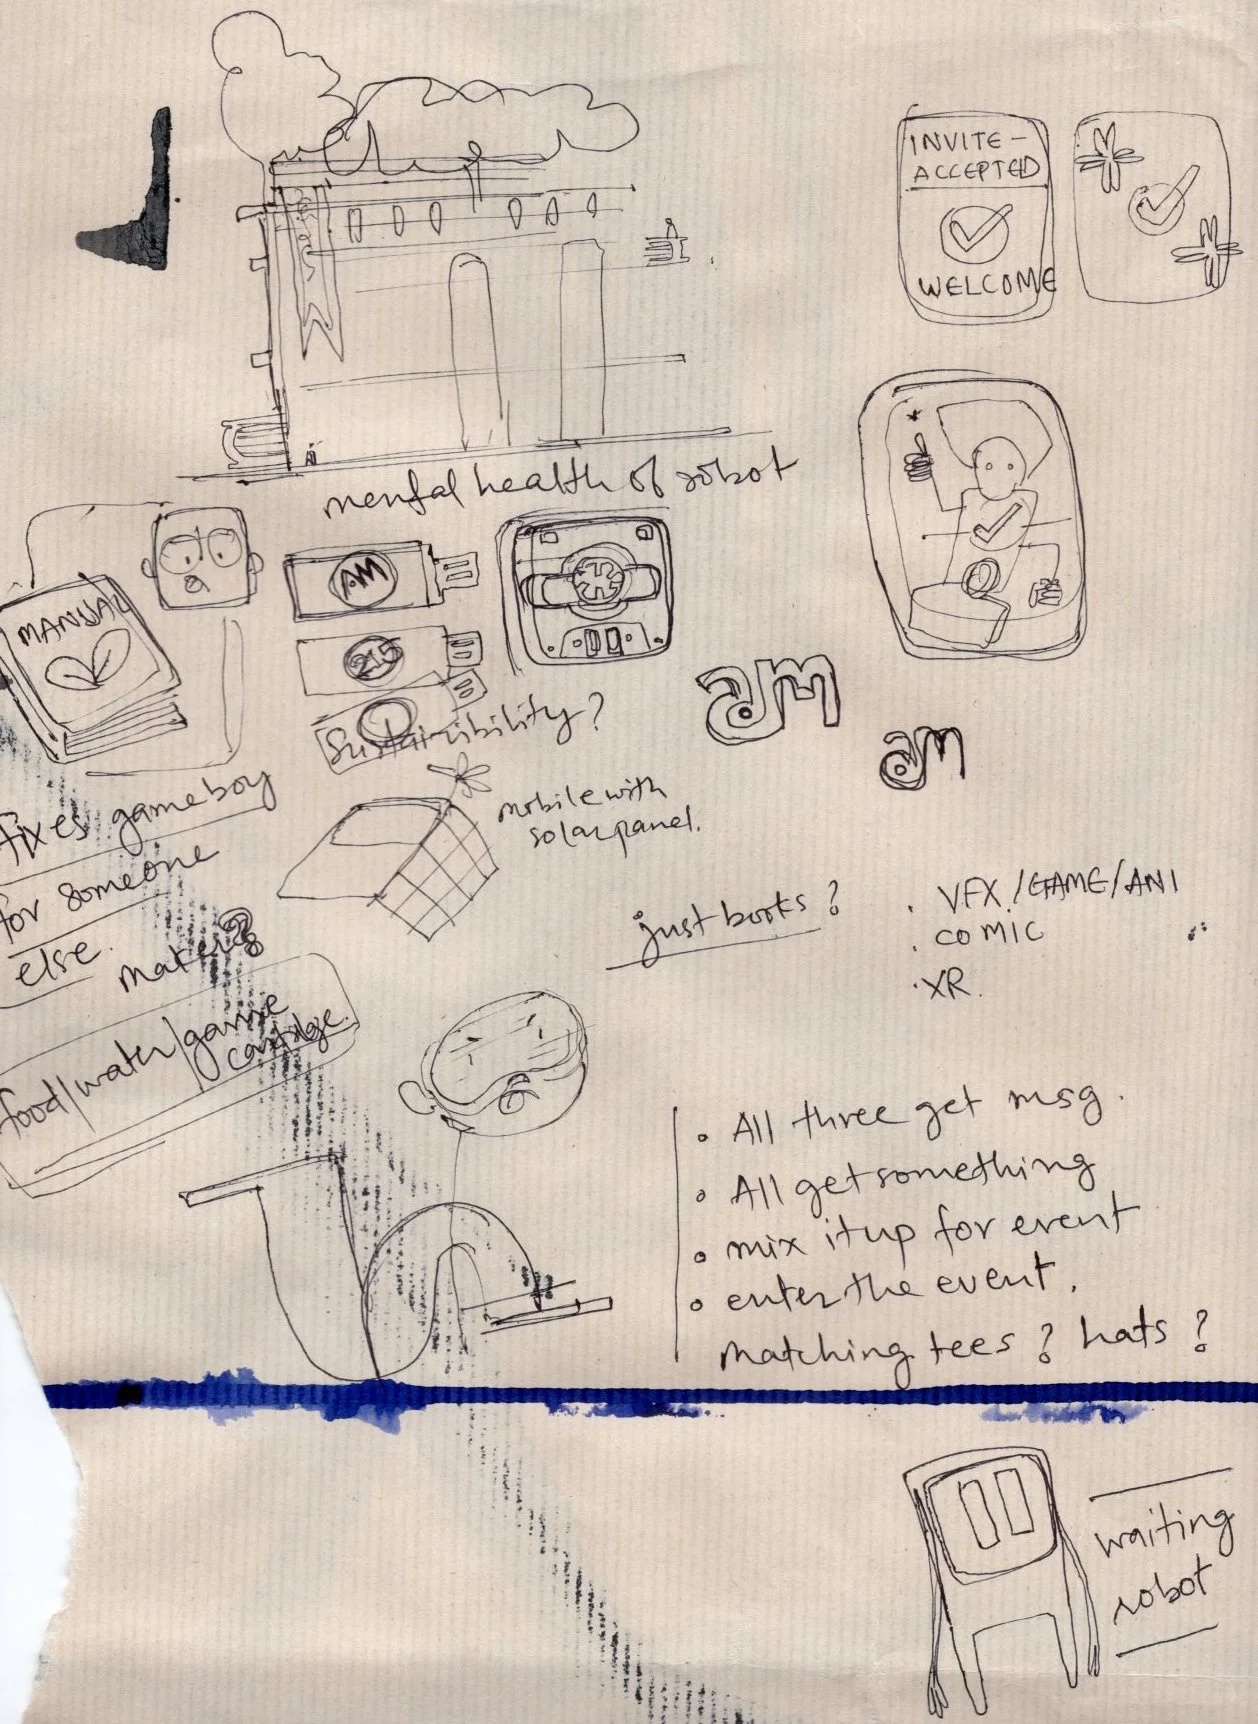 INVITE-
ACCEPTED
WELCOME
mental health of robot
MANUAL
AM
215
Sustainibility?
am
am
mobile with
solar panel.
fixes gameboy
for someone
else.
just books?
. VFX/GAME/ANI
. COMIC
. XR.
food/water/game
cartridge.
• All three get msg.
• All get something
• mix it up for event
• enter the event.
matching tees? hats?
waiting
robot